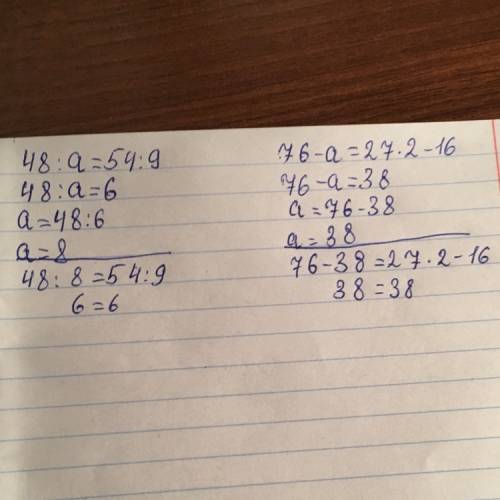 48 : a = 54 : 9
48 : a = 6
a = 48 : 6
a = 8
48 : 8 = 54 : 9
6 = 6
76 - a = 27 · 2 - 16
76 - a = 38
a = 76 - 38
a = 38
76 - 38 = 27 · 2 - 16
38 = 38